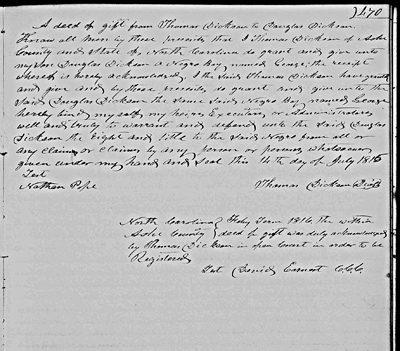 470
A deed of gift from Thomas Dickson to Douglas Dickson.
Know all men by these presents that I Thomas Dickson of Ashe
County and State of North Carolina do grant and give unto
my Son Douglas Dickson a Negro Boy named George, the receipt
whereof is hereby acknowledged, I the said Thomas Dickson have granted
and given and by these presents do grant and give unto the
Said Douglas Dickson the same said Negro Boy named George
hereby bind my self my heirs Executors or Administrators
well and truly to warrant and defend unto the said Douglas
Dickson the Right and title to the said Negro from all or
any claims or claims by any person or persons whatsoever
given under my hand and Seal this 14th day of July 1816
Test
Nathan Pope Thomas Dickson
North Carolina } July Term 1816, the within
Ashe County } deed for gift was duly acknowledged
by Thomas Dickson in open Court in order to be
Registered
Test David Earnest C.C.C.